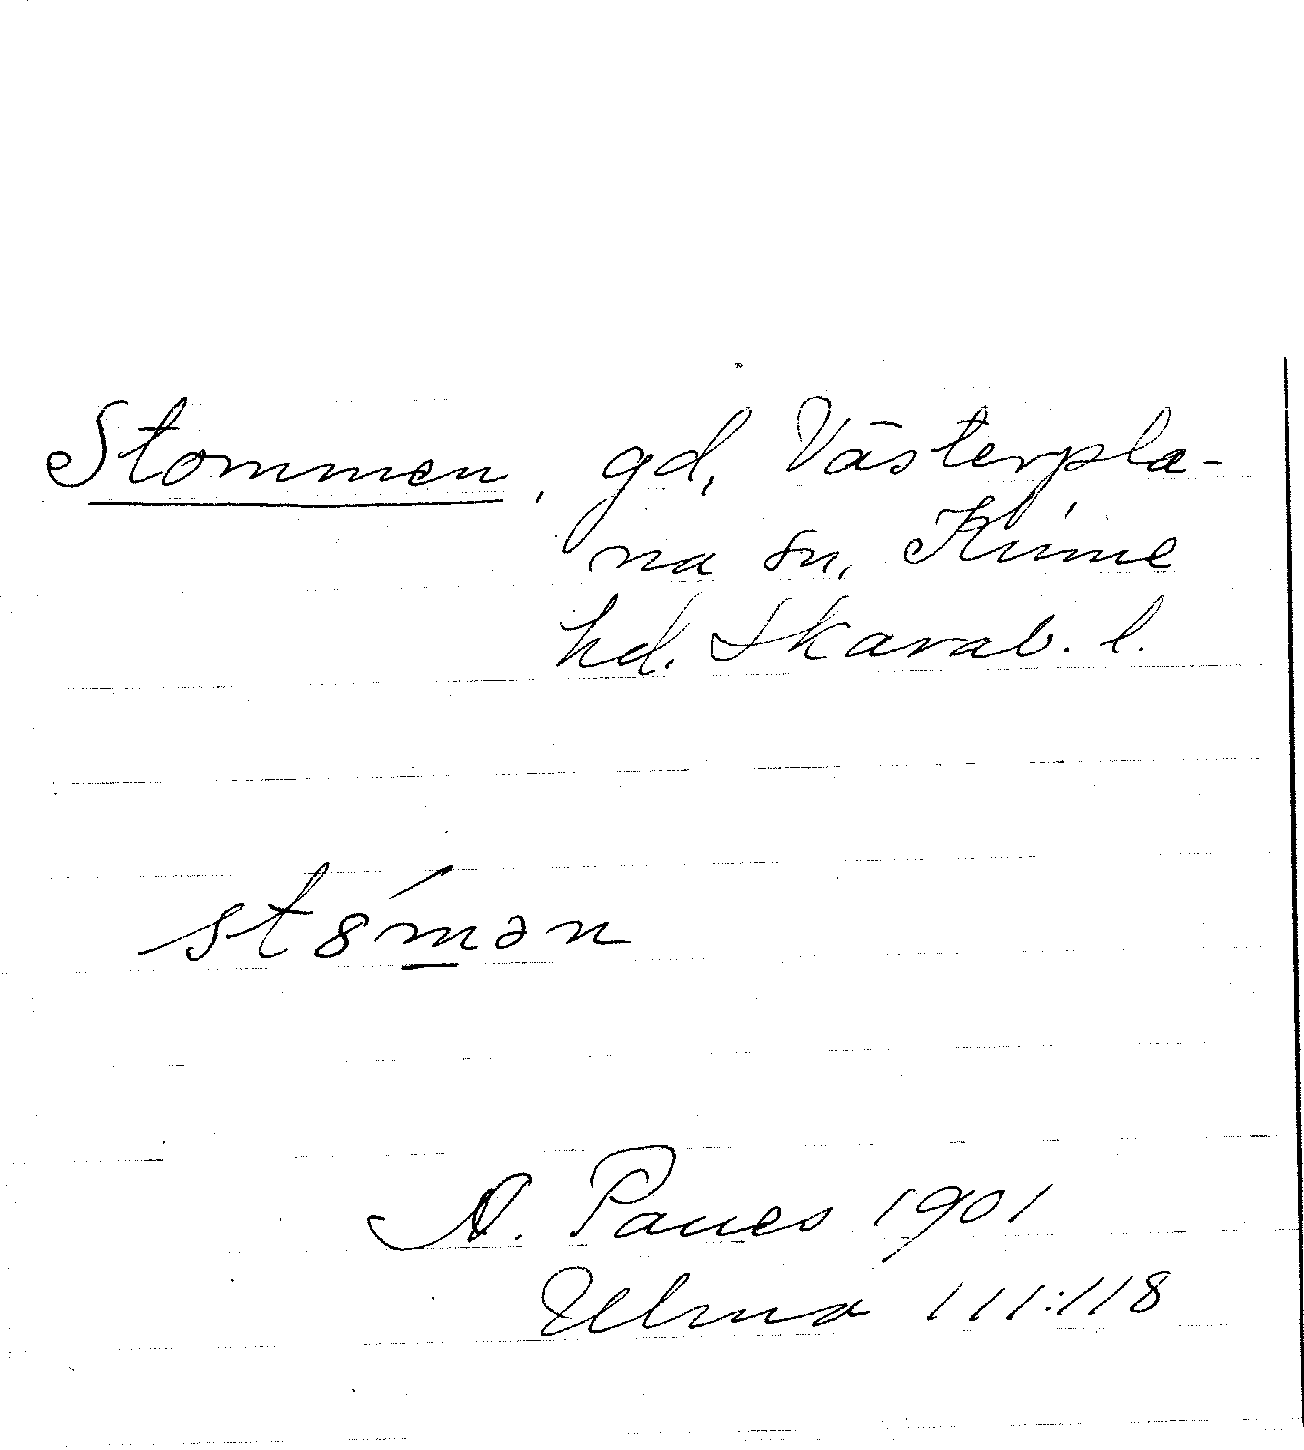 Stommen, gd, Västerpla-
na sn, Kinne
hd. Skarab. l.
st8́m̲ən
A. Paues 1901
Ulma 111:118